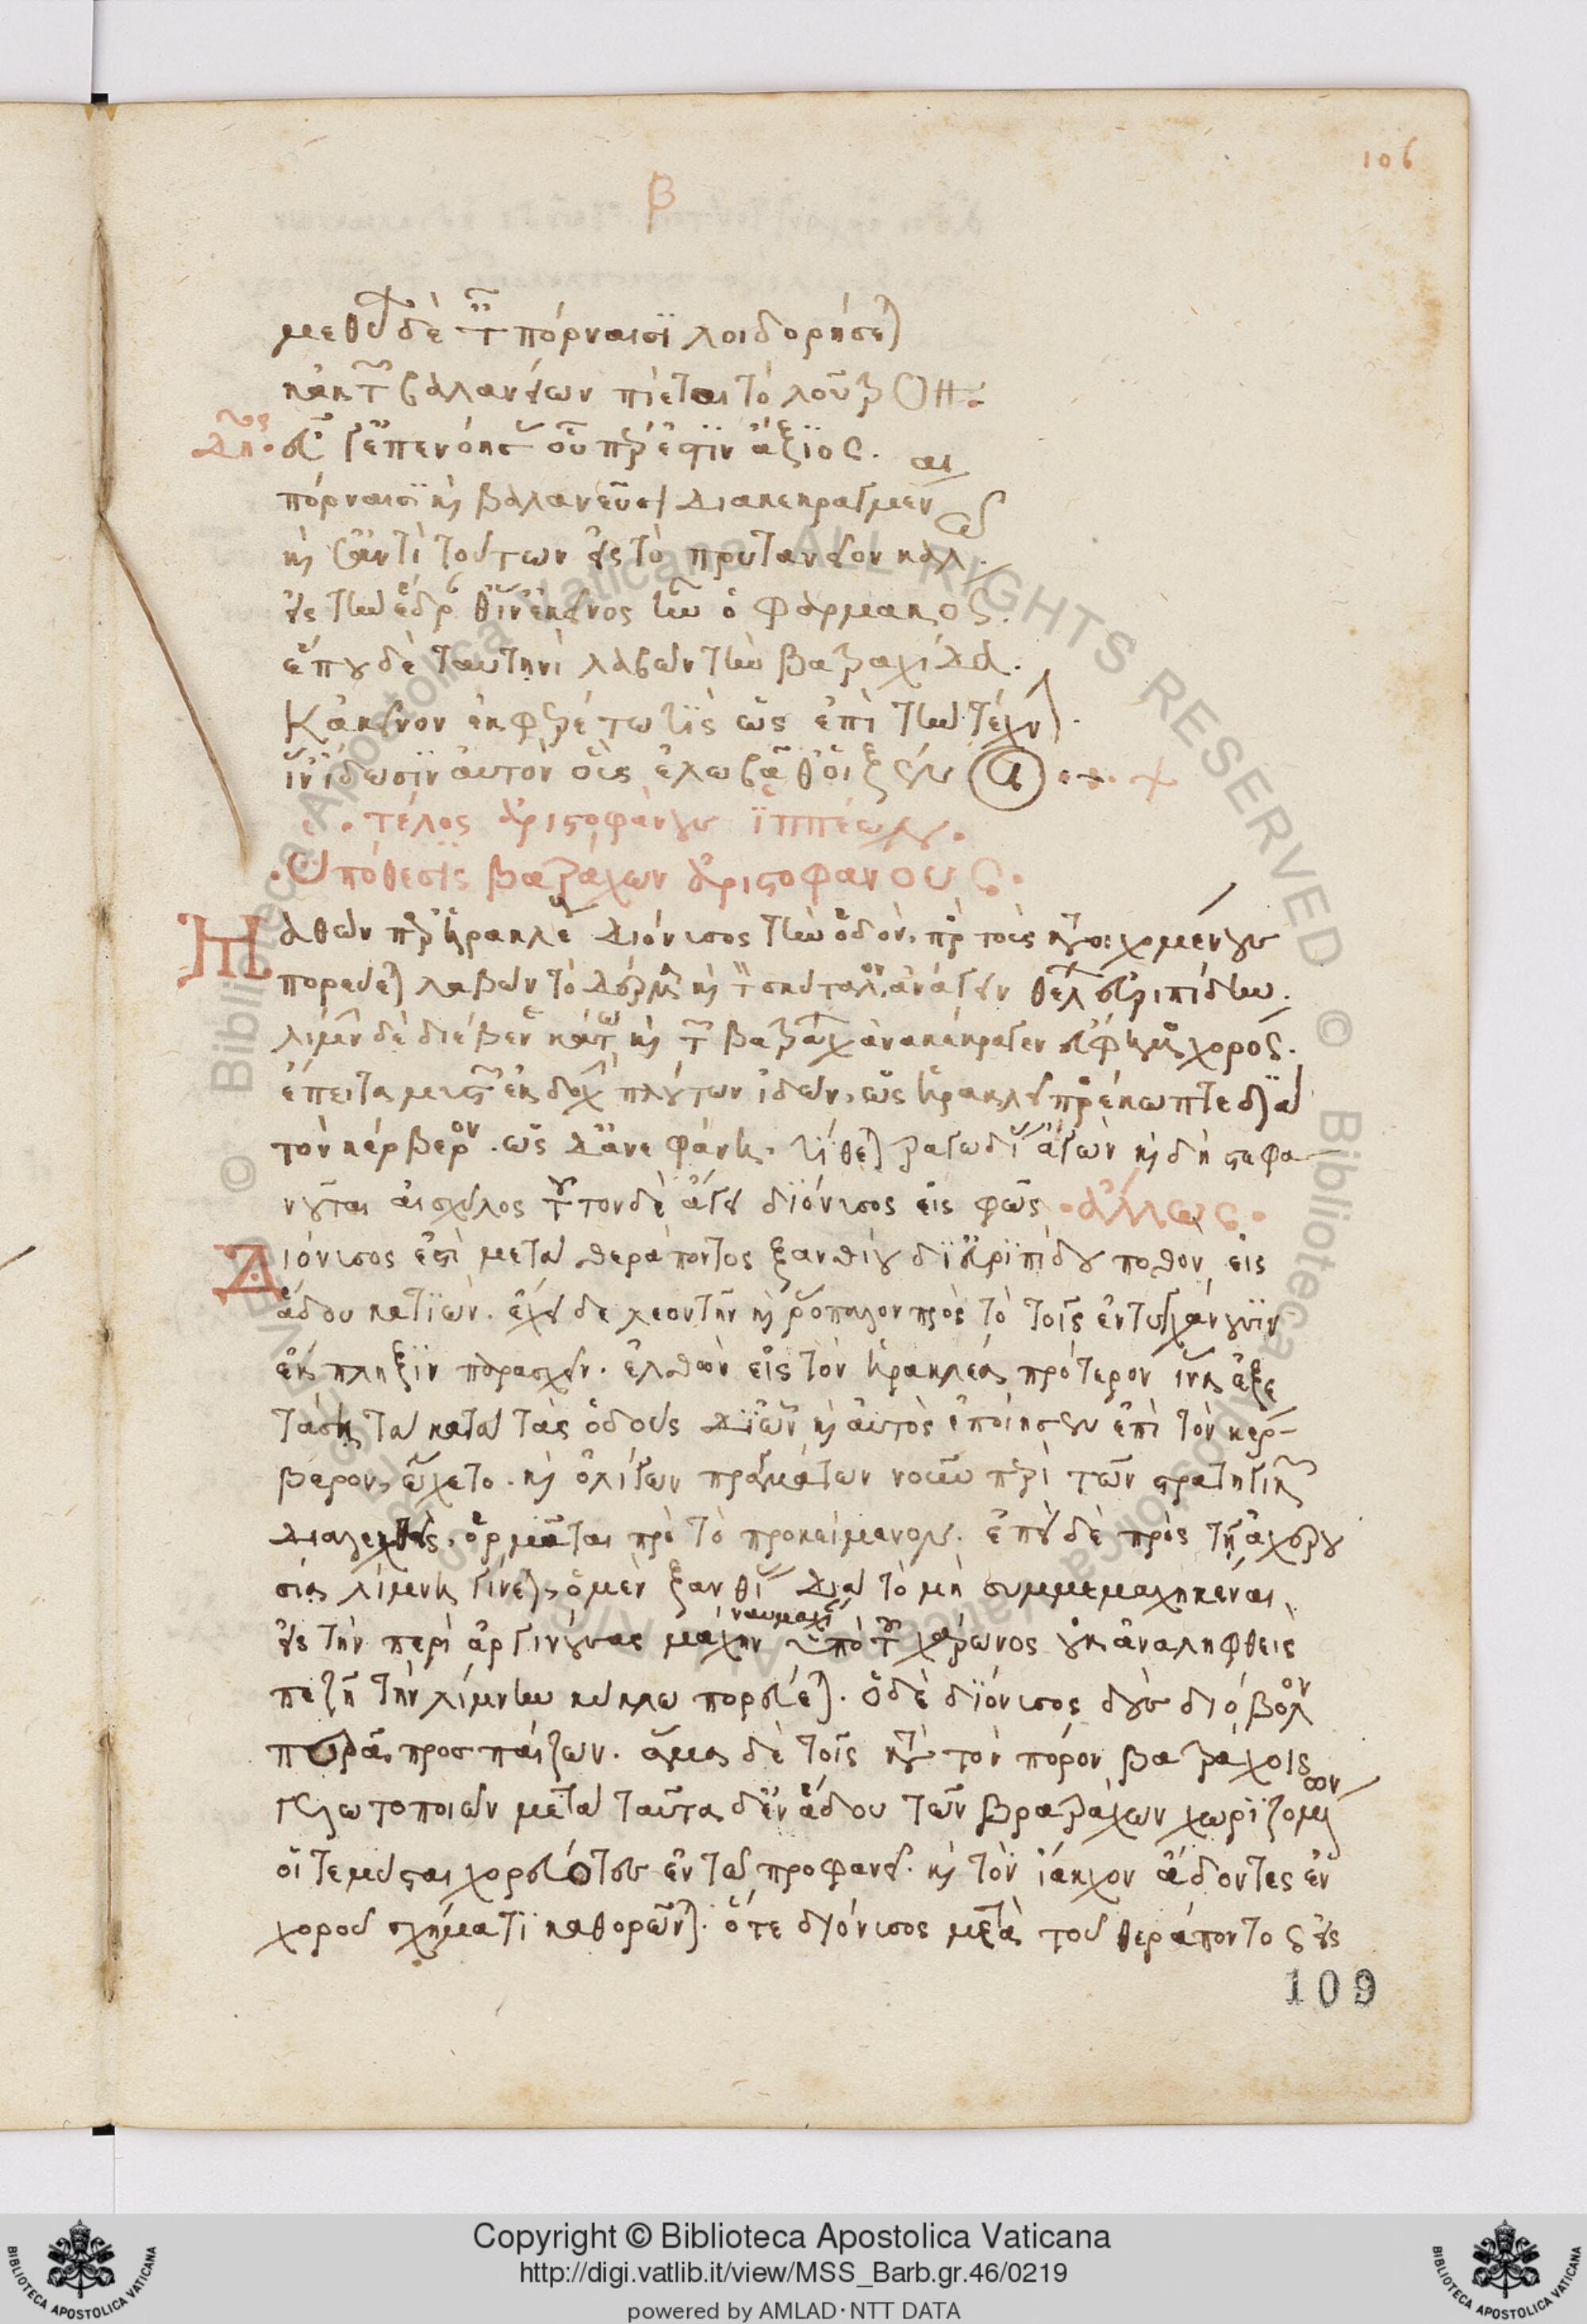 106
β
μεθύων δὲ ταῖς πόρναισι λοιδορήσεται
κἀκ τῶν βαλανείων πίεται τὸ λούτριον.
Δῆμος. εὖ γ' ἐπενόησας οὗπέρ ἐστιν ἄξιος.
πόρναισι καὶ βαλανεῦσι διακεκραγμέναι
καὶ σ' ἀντὶ τούτων εἰς τὸ πρυτανεῖον καλῶ
εἰς τὴν ἕδραν θ' ἵν' ἐκεῖνος ἦν ὁ φάρμακος.
ἕπου δὲ ταυτηνὶ λαβὼν τὴν βατραχίδα.
κἀκεῖνον ἐκφερέτω τίς ὡς ἐπὶ τὴν τέχνην.
ἵν' ἴδωσιν αὐτὸν οἷς ἐλωβᾶθ' οἱ ξένοι
τέλος ἀριστοφάνους ἱππέων.
Ὑπόθεσις βατράχων ἀριστοφάνους.
Μαθὼν παρ' ἡρακλέους Διόνυσος τὴν ὁδὸν. πρὸς τοὺς κατοιχομένους
πορεύεται λαβὼν τὸ δέρμα καὶ τὸ σκύταλον, ἀνάγειν θέλων εὐριπίδην.
λίμνην δὲ διέβαινεν κάτω καὶ τῶν βατράχων ἀνακέκραγεν εὔφημος χορός.
ἔπειτα μυστῶν ἐκδοχὴ πλούτων ἰδὼν, ὡς ἡρακλεῖ προσέκωπτε διὰ
τὸν κέρβερον. ὡς δ' ἀνεφάνη. τίθεται τραγωδίας ἀγὼν καὶ δὴ στεφα
νοῦται αἰσχύλος τοῦτον δὲ ἄγει διόνυσος εἰς φῶς. ἄλλως.
Διόνυσος ἐστὶ μετὰ θεράποντος ξανθίου δι' εὐριπίδου πόθον, εἰς
ἅδου κατιὼν. ἔχει δὲ λεοντῆν καὶ ῥόπαλον πρὸς τὸ τοῖς ἐντυγχάνουσιν
ἔκπληξιν παρασχεῖν. ἐλθὼν εἰς τὸν ἡρακλέα πρότερον ἵνα ἐξε
τάση τὰ κατὰ τὰς ὁδοὺς δι' ὧν καὶ αὐτὸς ἐποίησεν ἐπὶ τὸν κέρ-
βερον, ὤχετο. καὶ ὀλίγων πραγμάτων νοιῶν περὶ τῶν στρατηγικῶν
διαλεχθεὶς, ὁρμᾶται πρὸς τὸ προκείμενον. ἐπεὶ δὲ πρὸς τῇ ἀχερου
σία λίμνη γίνεται, ὁ μὲν ξανθίας διὰ τὸ μὴ συμμεμαχηκέναι,
εἰς τὴν περὶ ἀργινούσας μάχην ναυμαχίαν ὑπὸ τοῦ χάρωνος οὐκ ἀναληφθεὶς
πεζῆ τὴν λίμνην κύκλω πορεύεται. ὁ δὲ διόνυσος δοὺς διόβολον
περᾶ, προσπαίζων. ἅμα δὲ τοῖς κατὰ τὸν πόρον βατράχοις
γελωτοποιῶν μετὰ ταῦτα δ' ἐν ἅδου τῶν βρατράχων χωριζομένων
οἵ τε μύσται χορεύοντες ἐν τῶ προφανεῖ. καὶ τὸν ἴακχον ἄδοντες ἐν
χοροῦ σχήματι καθορῶνται. ὅτε διόνυσος μετὰ τοῦ θεράποντος εἰς
109
© Biblioteca Apostolica Vaticana ALL RIGHTS RESERVED
Copyright © Biblioteca Apostolica Vaticana
http://digi.vatlib.it/view/MSS_Barb.gr.46/0219
powered by AMLAD·NTT DATA
BIBLIOTECA APOSTOLICA VATICANA
BIBLIOTECA APOSTOLICA VATICANA